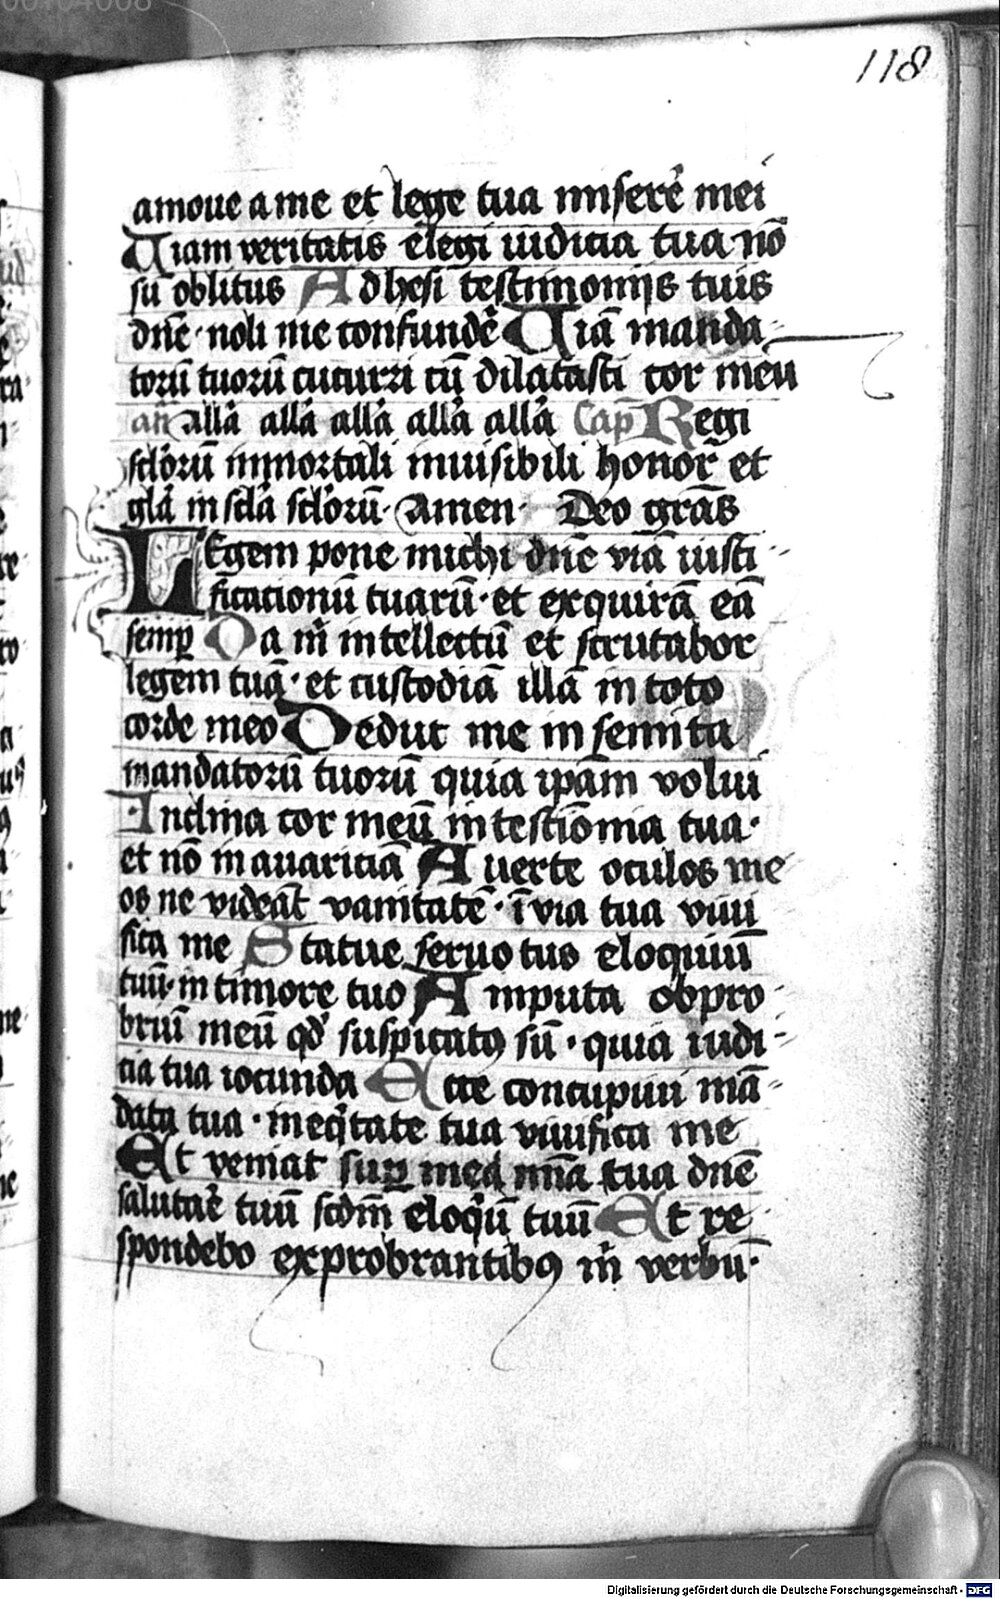 118
amoue a me et lege tua miserē mei
Uiam veritatis elegi iudicia tua nō
sū oblitus Adhesi testimonijs tuis
dn̄e · noli me confundē Uiā manda-
torū tuorū cucurri cū dilatasti cor meū
an̄ all̄a all̄a all̄a all̄a all̄a Cap̄ Regi
scl̄orū inmortali inuisibili honor̄ et
gl̄a in scl̄a scl̄orū · Amen · Deo gr̄as
LEgem pone michi dn̄e viā iusti-
ficationū tuarū · et exquirā eā
semꝑ Da m̄ intellectū et scrutabor
legem tuā · et custodiā illā in toto
corde meo Deduc me in semita
mandatorū tuorū quia ip̄am volui
Inclina cor meū in testīonia tua ·
et nō in auariciā Auerte oculos me
os ne videāt vanitatē · ī via tua viui
fica me Statue seruo tuo eloquiū
tuū · in timore tuo Amputa obpro-
briū meū qd̄ suspicatꝯ sū · quia iudi-
cia tua iocunda Ecce concupiui mā-
data tua · in eq̄tate tua viuifica me
Et veniat suꝑ me mīa tua dn̄e
salutarē tuū scd̄m eloq̄ū tuū Et re
spondebo exprobrantibꝯ m̄ verbū ·
Digitalisierung gefördert durch die Deutsche Forschungsgemeinschaft - DFG